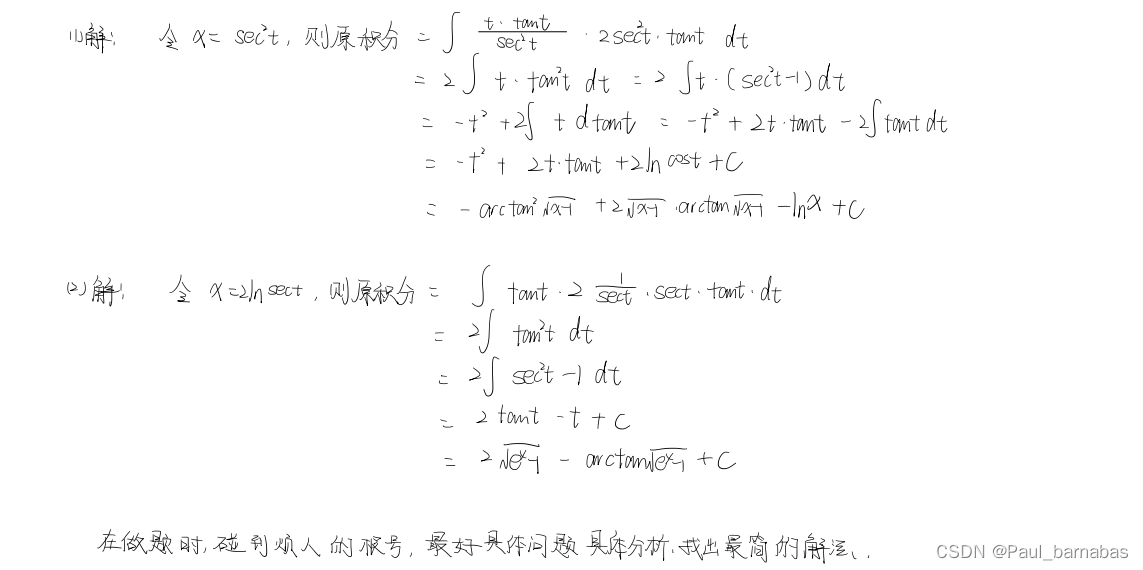 (1)解: 令 x = sec²t, 则原积分 = ∫ (t·tant)/(sec²t) · 2sec²t·tant dt
= 2∫ t·tan²t dt = 2∫t·(sec²t-1)dt
= -t² + 2∫ t dtant = -t² + 2t·tant - 2∫tant dt
= -t² + 2t·tant + 2ln cost + C
= -arctan²√(x-1) + 2√(x-1)·arctan√(x-1) - lnx + C
(2)解: 令 x=2ln sect, 则原积分 = ∫ tant·2 (1/sect)·sect·tant·dt
= 2∫ tan²t dt
= 2∫ sec²t -1 dt
= 2 tant - t + C
= 2√(eˣ-1) - arctan√(eˣ-1) + C
在做题时,碰到烦人的根号,最好具体问题具体分析.找出最简的解法.
CSDN @Paul_barnabas